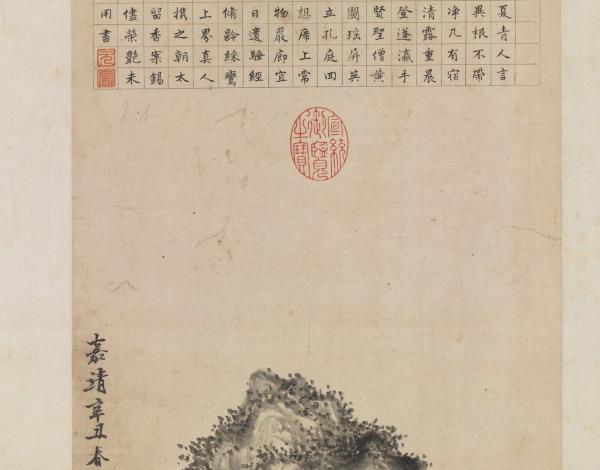 夏青人言
異根不帶
净几有宿
清露重晨
登蓬瀛手
賢聖僧黄
國瑤屏英
立孔庭四
想席上常
物嚴廊宜
日遺騷經
脩齡綠鸞
上界真人
携之朝太
留香案錫
儘榮艷未
用書
宣統御覽之寶
嘉靖辛丑春